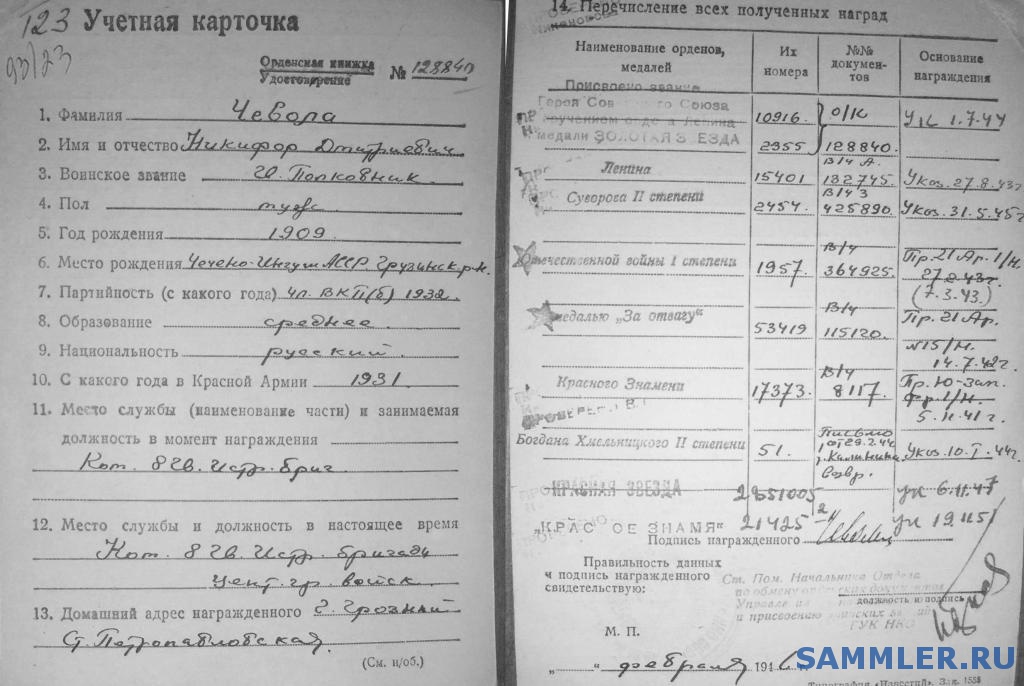 123 Учетная карточка
93/23
Орденская книжка
Удостоверение № 128840
1. Фамилия Чевола
2. Имя и отчество Никифор Дмитриевич
3. Воинское звание Гв. Полковник.
4. Пол муж.
5. Год рождения 1909.
6. Место рождения Чечено-Ингуш АССР Грузинск. р-н.
7. Партийность (с какого года) чл. ВКП(б) 1932.
8. Образование среднее.
9. Национальность русский.
10. С какого года в Красной Армии 1931.
11. Место службы (наименование части) и занимаемая
должность в момент награждения
Ком. 8 Гв. Истр. бриг.
12. Место службы и должность в настоящее время
Ком. 8 Гв. Истр. бригады
Цент. гр. войск.
13. Домашний адрес награжденного г. Грозный
Ст. Петропавловская
(См. н/об.)
14. Перечисление всех полученных наград
Наименование орденов, медалей
Их номера
№№ документов
Основание награждения
Присвоено звание
Героя Советского Союза
вручением ордена Ленина 10916. о/к Ук 1.7.44
медали ЗОЛОТАЯ ЗВЕЗДА 2355 128840.
Ленина 15401 в/ч А. 132745. Указ. 27.8.43г
Суворова II степени 2454. в/ч З 425890. Указ. 31.5.45г
Отечественной войны I степени 1957. в/ч 364925. Пр. 21 Ар. 1/Н. 27.2.43г.
(7.3.43.)
медалью „За отвагу" 53419 в/ч 115120. Пр. 21 Ар.
№15/Н.
14.7.42г.
Красного Знамени 17373. в/ч 8117. Пр. Ю-Зап.
Фр. 1/Н.
5.11.41г.
Богдана Хмельницкого II степени 51. Письмо от 29.2.44 т. Калинина возвр. Указ. 10.I.44г.
КРАСНАЯ ЗВЕЗДА 2851005 ук 6.11.47
„КРАСНОЕ ЗНАМЯ" 21425 ук 19.11.51
Подпись награжденного
Правильность данных
и подпись награжденного
свидетельствую:
Ст. Пом. Начальника Отдела
по обмену орденских документов
должность и подпись
и присвоению воинских званий
ГУК НКО
М. П.
„ " февраля 194
Типография «Известий». Зак. 1558
SAMMLER.RU